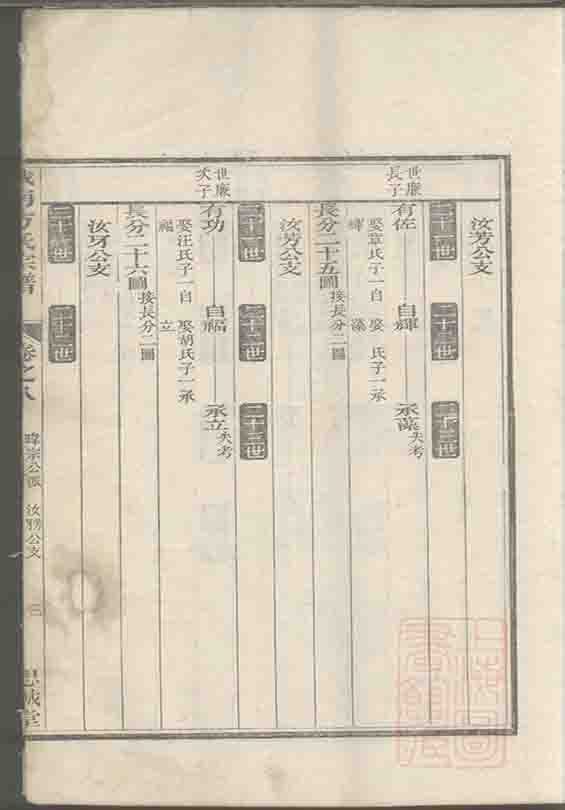 汝芳公支
二十一世
二十二世
二十三世
世廉
長子
有佐
娶章氏子一自
輝
自輝
娶 氏子一承
藻
承藻
失考
長分二十五圖
接長分二圖
汝芳公支
二十一世
二十二世
二十三世
世廉
次子
有功
娶汪氏子一自
福
自福
娶胡氏子一承
立
承立
失考
長分二十六圖
接長分二圖
汝芳公支
二十一世
二十二世
方氏宗譜
卷之八
暐宗公派
汝芳公支
三
思誠堂
上海圖
書館藏